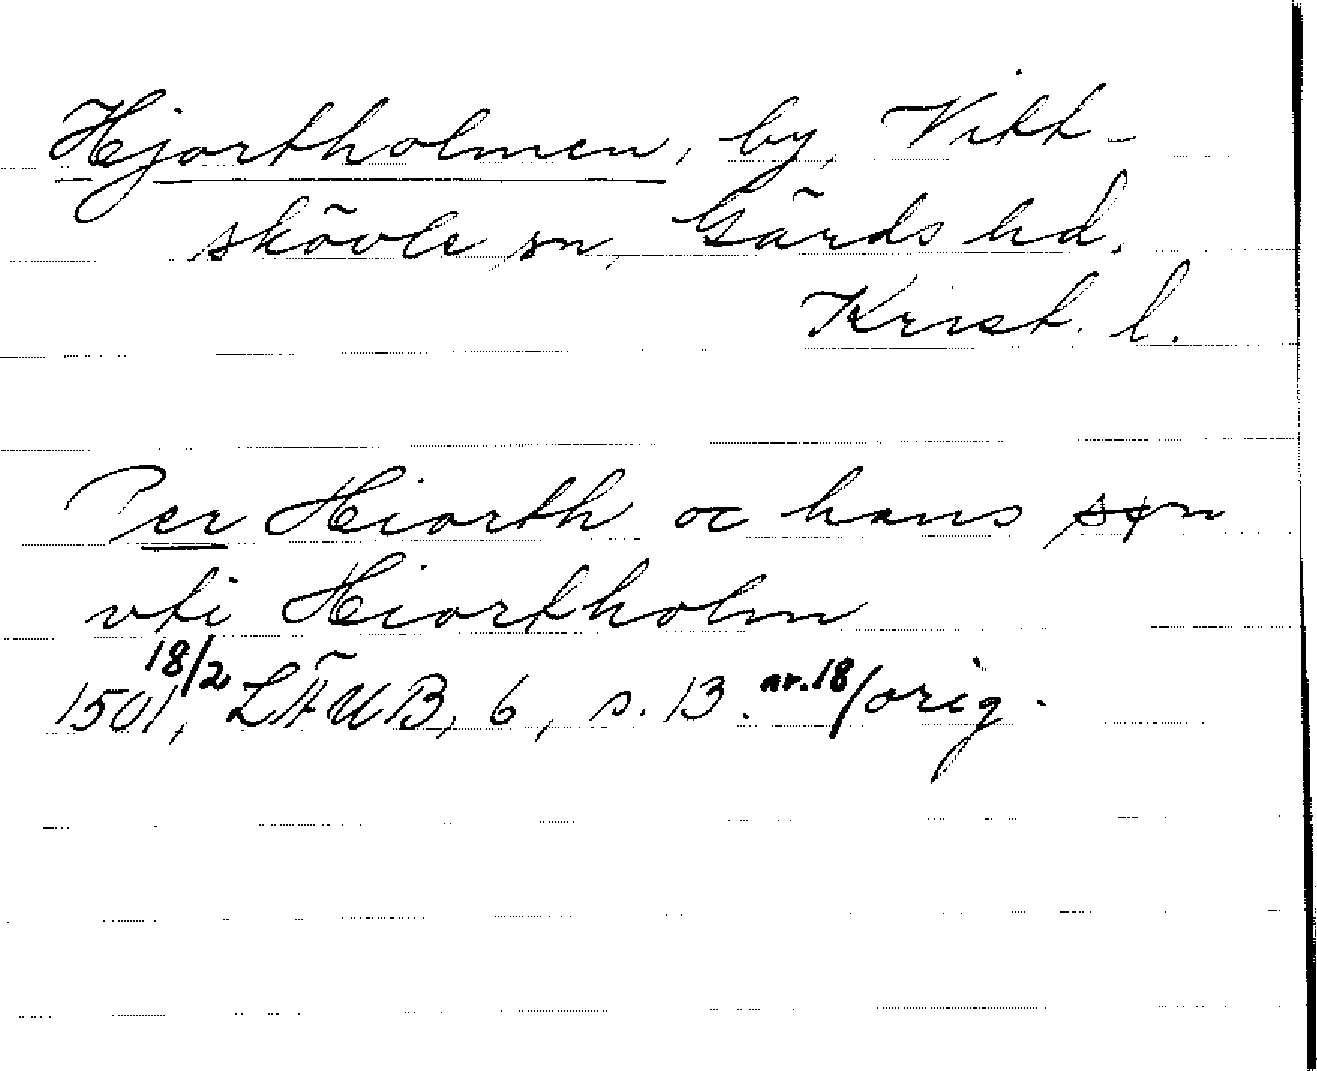 Hjortholmen, by, Vitt-
skövle sn, Gärds hd.
Krist. l.
Per Hiorth oc hans søn
vti Hiortholm
1501, 18/2 LÄUB, 6, s. 13. nr. 18/orig.